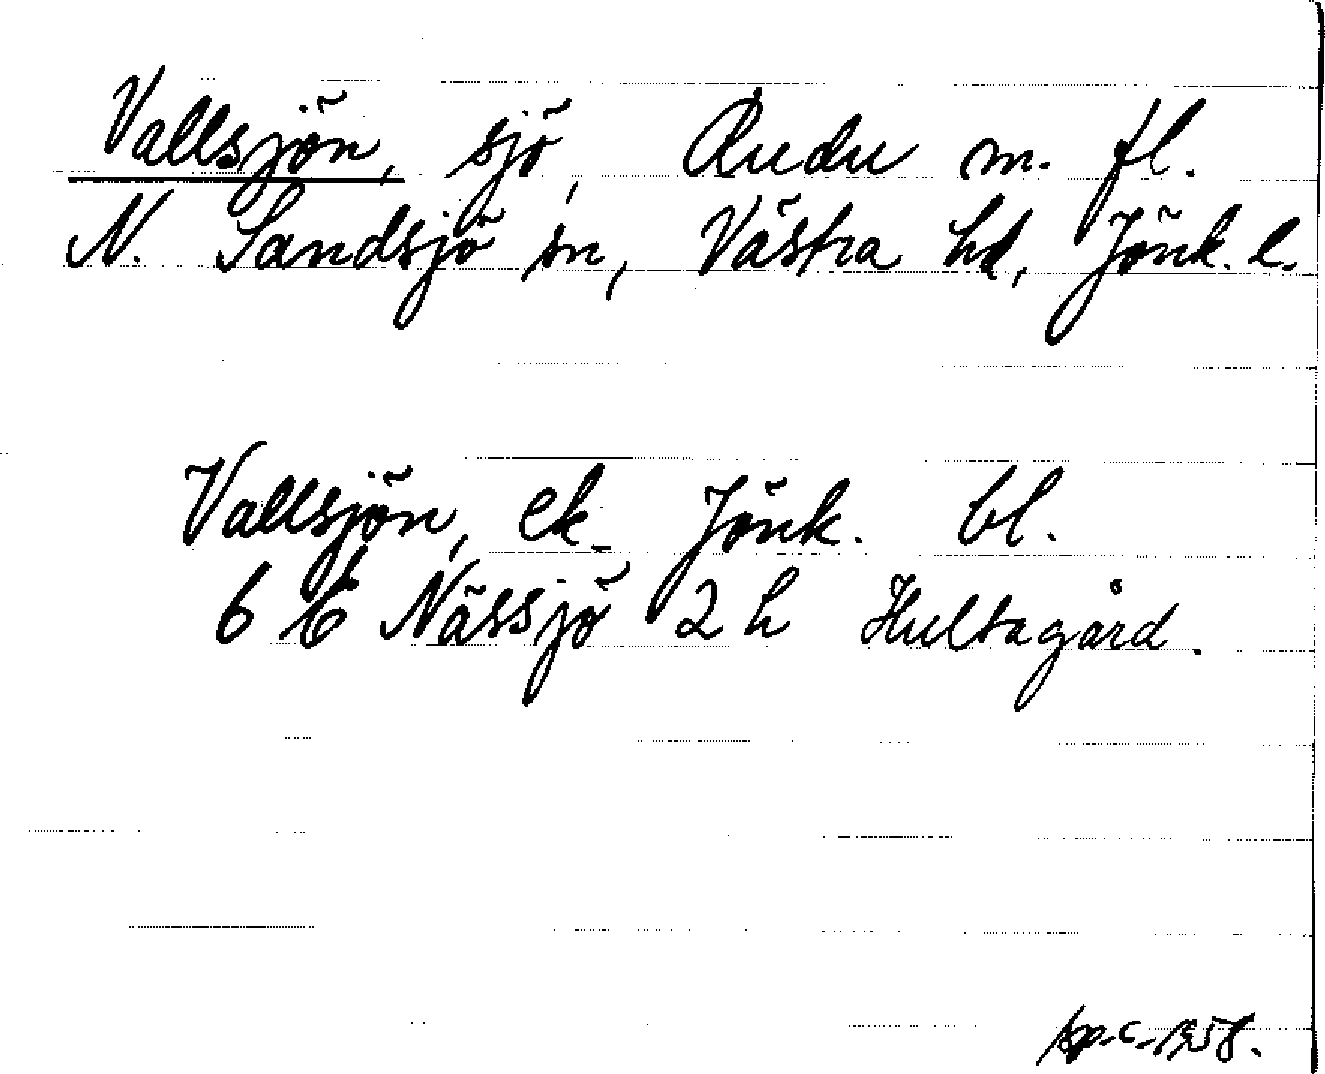 Vallsjön, sjö, Rudu m. fl.
N. Sandsjö sn, Västra hd, Jönk. l.
Vallsjön, ek. Jönk. bl.
6 E Nässjö 2 h Hultagård.
1958.